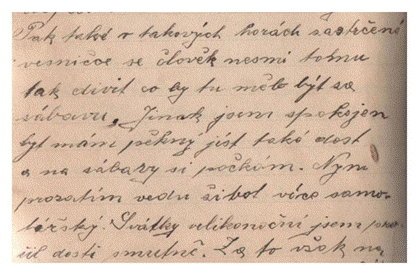 Pak také v takových horách zastrčené
vesničce se člověk nesmí tomu
tak divit co by tu mělo být za
zábavu, Jinak jsem spokojen
byt mám pěkný jíst také dost
a na zábavy si počkám. Nyní
prozatím vedu život více samo-
tářský. Svátky velikonoční jsem pro-
žil dosti smutně. Za to však na